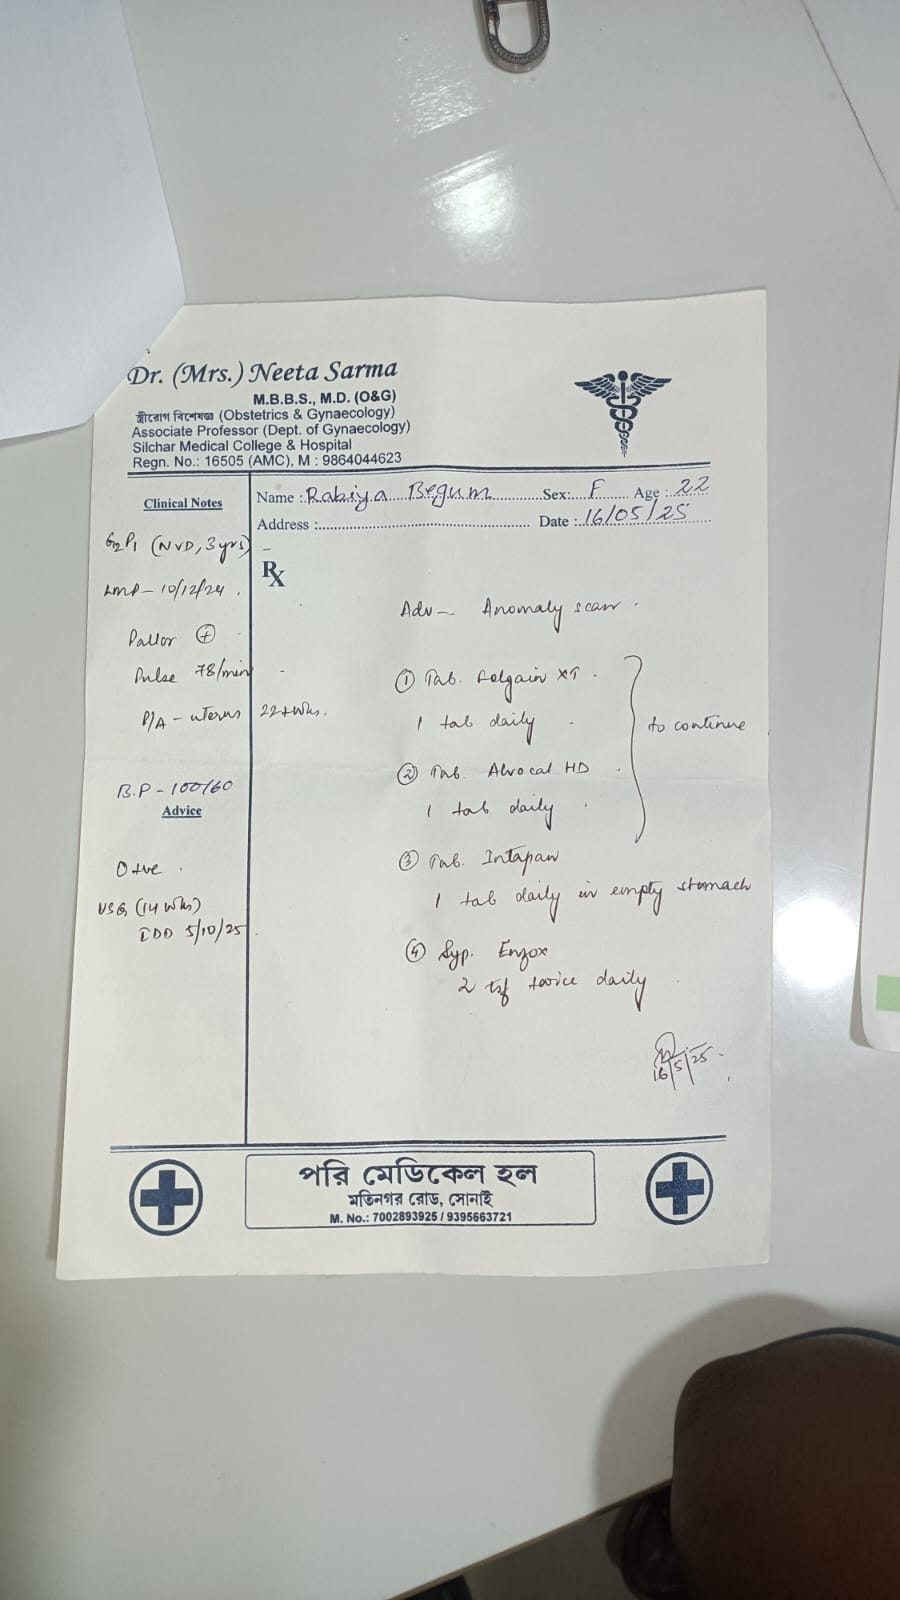 Dr. (Mrs.) Neeta Sarma
M.B.B.S., M.D. (O&G)
স্ত্রীরোগ বিশেষজ্ঞ (Obstetrics & Gynaecology)
Associate Professor (Dept. of Gynaecology)
Silchar Medical College & Hospital
Regn. No.: 16505 (AMC), M : 9864044623
Name : Rabiya Begum Sex: F Age : 22
Address : Date : 16/05/25
Clinical Notes
G2P1 (NVD, 3 yrs)
LMP - 10/12/24
Pallor +
Pulse 78/min
P/A - uterus 22+ Wks.
B.P - 100/60
Advice
O+ve
USG (14 Wks)
EDD 5/10/25
Rx
Adv - Anomaly scan
① Tab. Folgain XT
1 tab daily
② Tab. Alvocal HD
1 tab daily
to continue
③ Tab. Intapan
1 tab daily in empty stomach
④ Syp. Enzox
2 tsf twice daily
16/5/25
পরি মেডিকেল হল
মতিনগর রোড, সোনাই
M. No.: 7002893925 / 9395663721